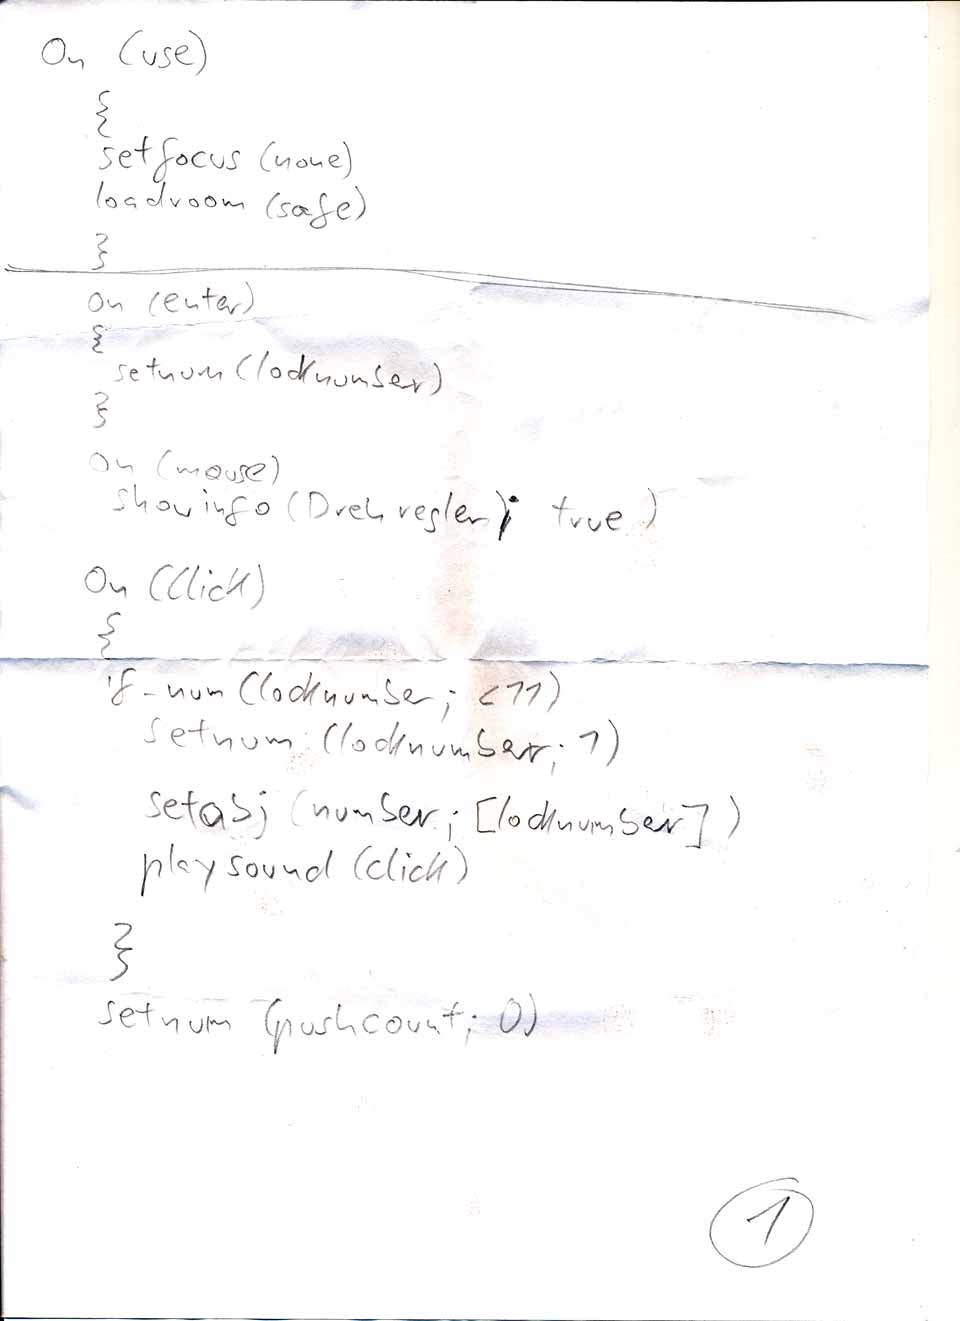 On (use)
{
setfocus (none)
loadroom (safe)
}
On (enter)
{
setnum (locknumber)
}
On (mouse)
showinfo (Drehregler); true)
On (Click)
{
if-num (locknumber; <11)
setnum (locknumber; 1)
setobj (number; [locknumber])
playsound (click)
}
setnum (pushcount; 0)
1